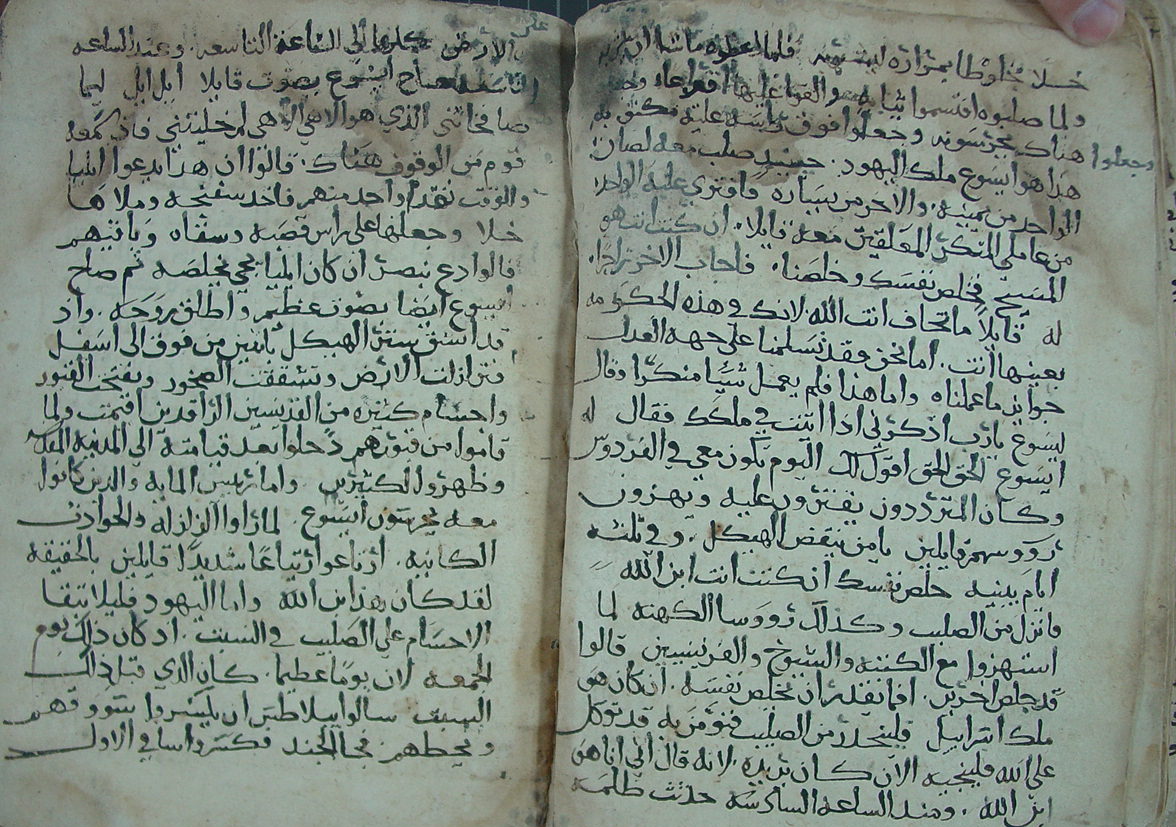 خلا مخلوطا بمراره ليشربه فلما اعطوه ما شا ان يشرب
ولما صلبوه اقتسموا ثيابه والقوا عليها
وجعلوا
هناك يحرسونه وجعلوا فوق راسه عليه مكتوبه
هذا هو ايسوع ملك اليهود حينيذ صلب معه لصان
الواحد من يمينه والاخر من يساره وافتري عليه الواحد
من عاملي المنكر المعلقين معه قايلا ان كنت انت هو
المسيح فخلص نفسك وخلصنا فاجاب الاخر زاجرا
له قايلا ما تخاف انت الله لانك في هذه الحكومه
بعينها انت اما نحن فقد تسلمنا على جهة العدل
جوايز ما عملناه واما هذا فلم يعمل شيا منكرا وقال
ليسوع يا رب اذكرني اذا اتيت في ملكك فقال له
ايسوع الحق الحق اقول لك اليوم تكون معي في الفردوس
وكان المترددون يفترون عليه ويهزون
رووسهم قايلين يا من ينقض الهيكل وفي ثلثه
ايام يبنيه خلص نفسك ان كنت انت ابن الله
فانزل من الصليب وكذلك رووسا الكهنه لما
استهزوا مع الكتبه والشيوخ والفريسيين قالوا
قد خلص اخرين افما يقدر ان يخلص نفسه ان كان هو
ملك اسراييل فلينحدر من الصليب فنومن به قد توكل
على الله فلينجيه الان ان كان يريده لانه قال اني انا هو
ابن الله ومند الساعه السادسه حدثت ظلمه
على
الارض كلها الى الساعة التاسعه وعند الساعه
التاسعه صاح ايسوع بصوت قايلا ايل ايل ليما
صافختني الذي هو الاهي الاهي لم خليتني فاذ سمعه
قوم من الوقوف هناك قالوا ان هذا يدعوا ايليا
وللوقت تقدم واحد منهم فاخد سفنجه وملاها
خلا وجعلها على راس قصبه وسقاه وباقيهم
قالوا دع نبصر ان كان ايليا يجي يخلصه ثم صاح
ايسوع ايضا بصوت عظيم واطلق روحه واذ
قد انشق ستر الهيكل باثنين من فوق الى اسفل
وتزلزلت الارض وتشققت الصخور وتفتحت القبور
واجسام كثيره من القديسين الراقدين اقيمت ولما
قاموا من قبورهم دخلوا بعد قيامته الي المدينه المقدسه
وظهروا لكثيرين واما رييس المايه والدين كانوا
معه يحرسون ايسوع لما راوا الزلزله والحوادث
الكاينه ارتاعوا ارتياعا شديدا قايلين بالحقيقه
لقد كان هذا ابن الله واما اليهود فليلا تبقا
الاجسام على الصليب في السبت اد كان داك يوم
الجمعه لان يوما عظيما كان الدي قبل ذلك
السبت سالوا بيلاطس ان يكسروا سووقهم
ويحطهم فجا الجند فكسروا ساقي الاول